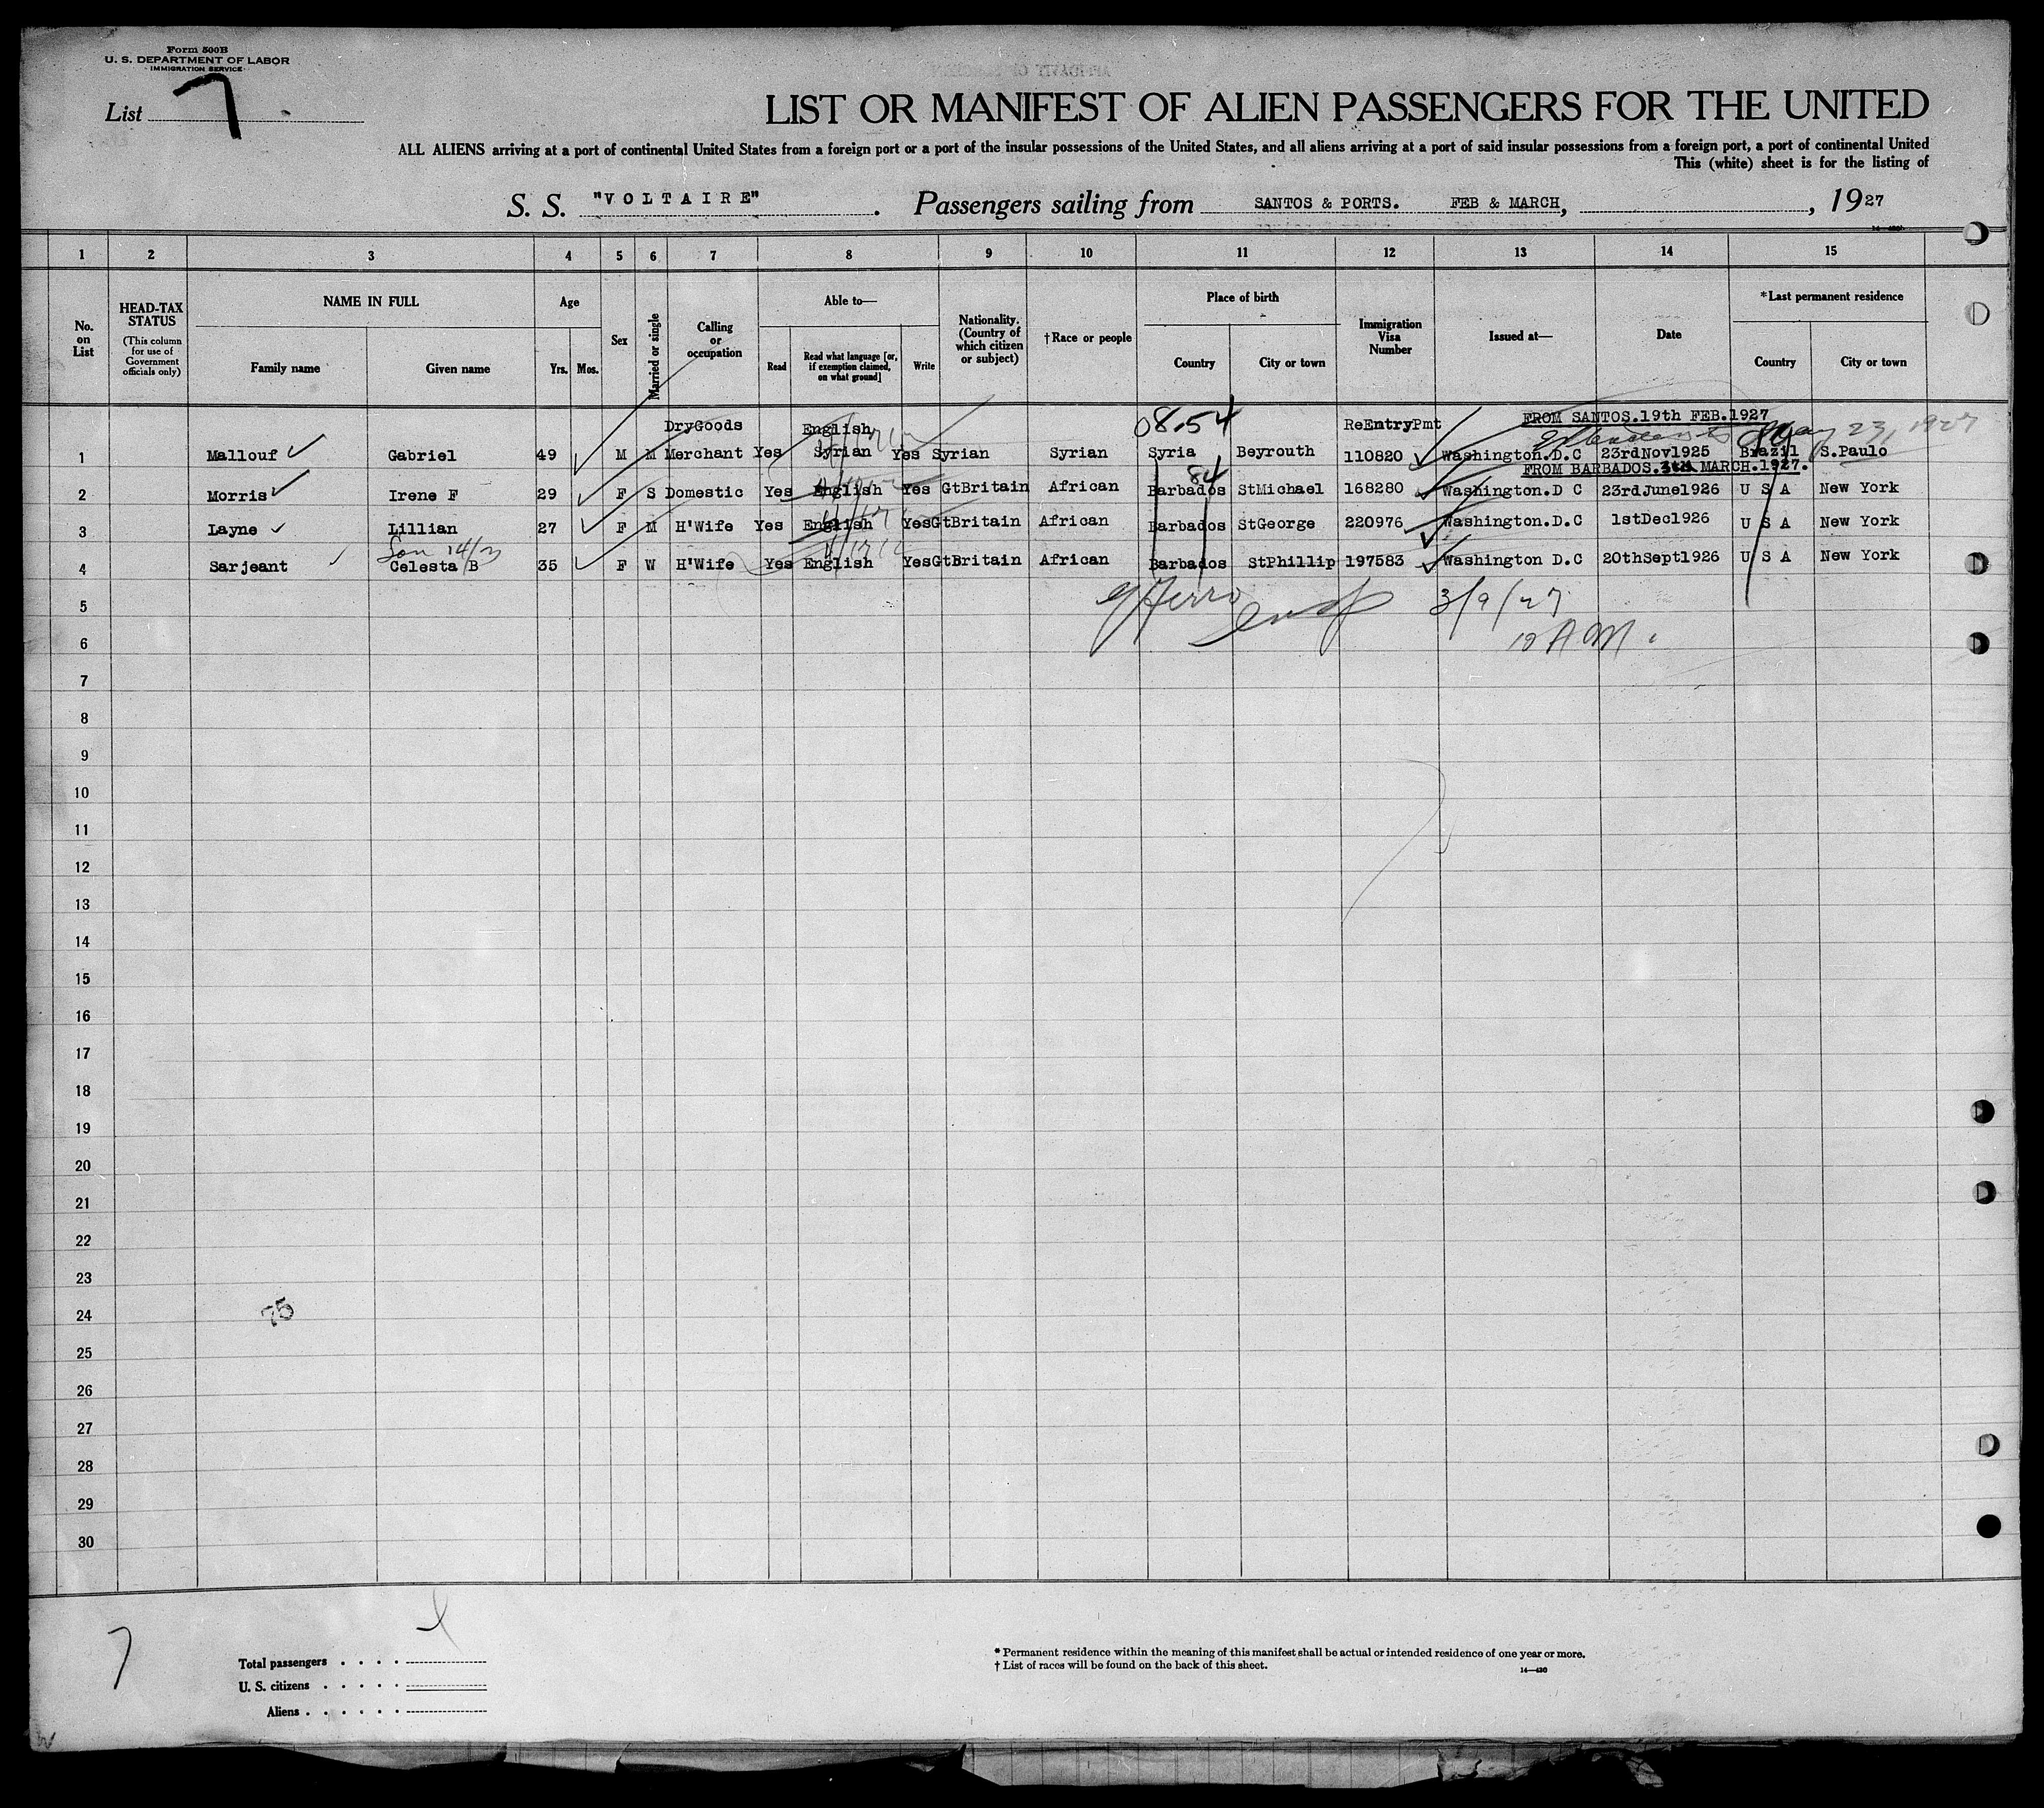 Form 500B
U. S. DEPARTMENT OF LABOR
IMMIGRATION SERVICE
List 7
LIST OR MANIFEST OF ALIEN PASSENGERS FOR THE UNITED
ALL ALIENS arriving at a port of continental United States from a foreign port or a port of the insular possessions of the United States, and all aliens arriving at a port of said insular possessions from a foreign port, a port of continental United
This (white) sheet is for the listing of
S. S. "VOLTAIRE". Passengers sailing from SANTOS & PORTS. FEB & MARCH, , 1927
1 2 3 4 5 6 7 8 9 10 11 12 13 14 15
No. on List
HEAD-TAX STATUS
(This column for use of Government officials only)
NAME IN FULL
Family name Given name
Age
Yrs. Mos.
Sex
Married or single
Calling or occupation
Able to—
Read
Read what language [or, if exemption claimed, on what ground]
Write
Nationality. (Country of which citizen or subject)
†Race or people
Place of birth
Country City or town
Immigration Visa Number
Issued at—
Date
*Last permanent residence
Country City or town
FROM SANTOS.19th FEB.1927
08.54
DryGoods English ReEntryPmt
May 23, 1927
1 Mallouf Gabriel 49 M M Merchant Yes Syrian Yes Syrian Syrian Syria Beyrouth 110820 Washington.D.C 23rdNov1925 Brazil S.Paulo
FROM BARBADOS. MARCH.1927.
84
2 Morris Irene F 29 F S Domestic Yes English Yes GtBritain African Barbados StMichael 168280 Washington.D C 23rdJune1926 U S A New York
3 Layne Lillian 27 F M H'Wife Yes English Yes GtBritain African Barbados StGeorge 220976 Washington.D.C 1stDec1926 U S A New York
4 Sarjeant Celesta B 35 F W H'Wife Yes English Yes GtBritain African Barbados StPhillip 197583 Washington D.C 20thSept1926 U S A New York
5
3/9/27
6
10 AM.
7
8
9
10
11
12
13
14
15
16
17
18
19
20
21
22
23
24
75
25
26
27
28
29
30
7
Total passengers . . . .
U. S. citizens . . . . .
Aliens . . . . . .
* Permanent residence within the meaning of this manifest shall be actual or intended residence of one year or more.
† List of races will be found on the back of this sheet.
14—430